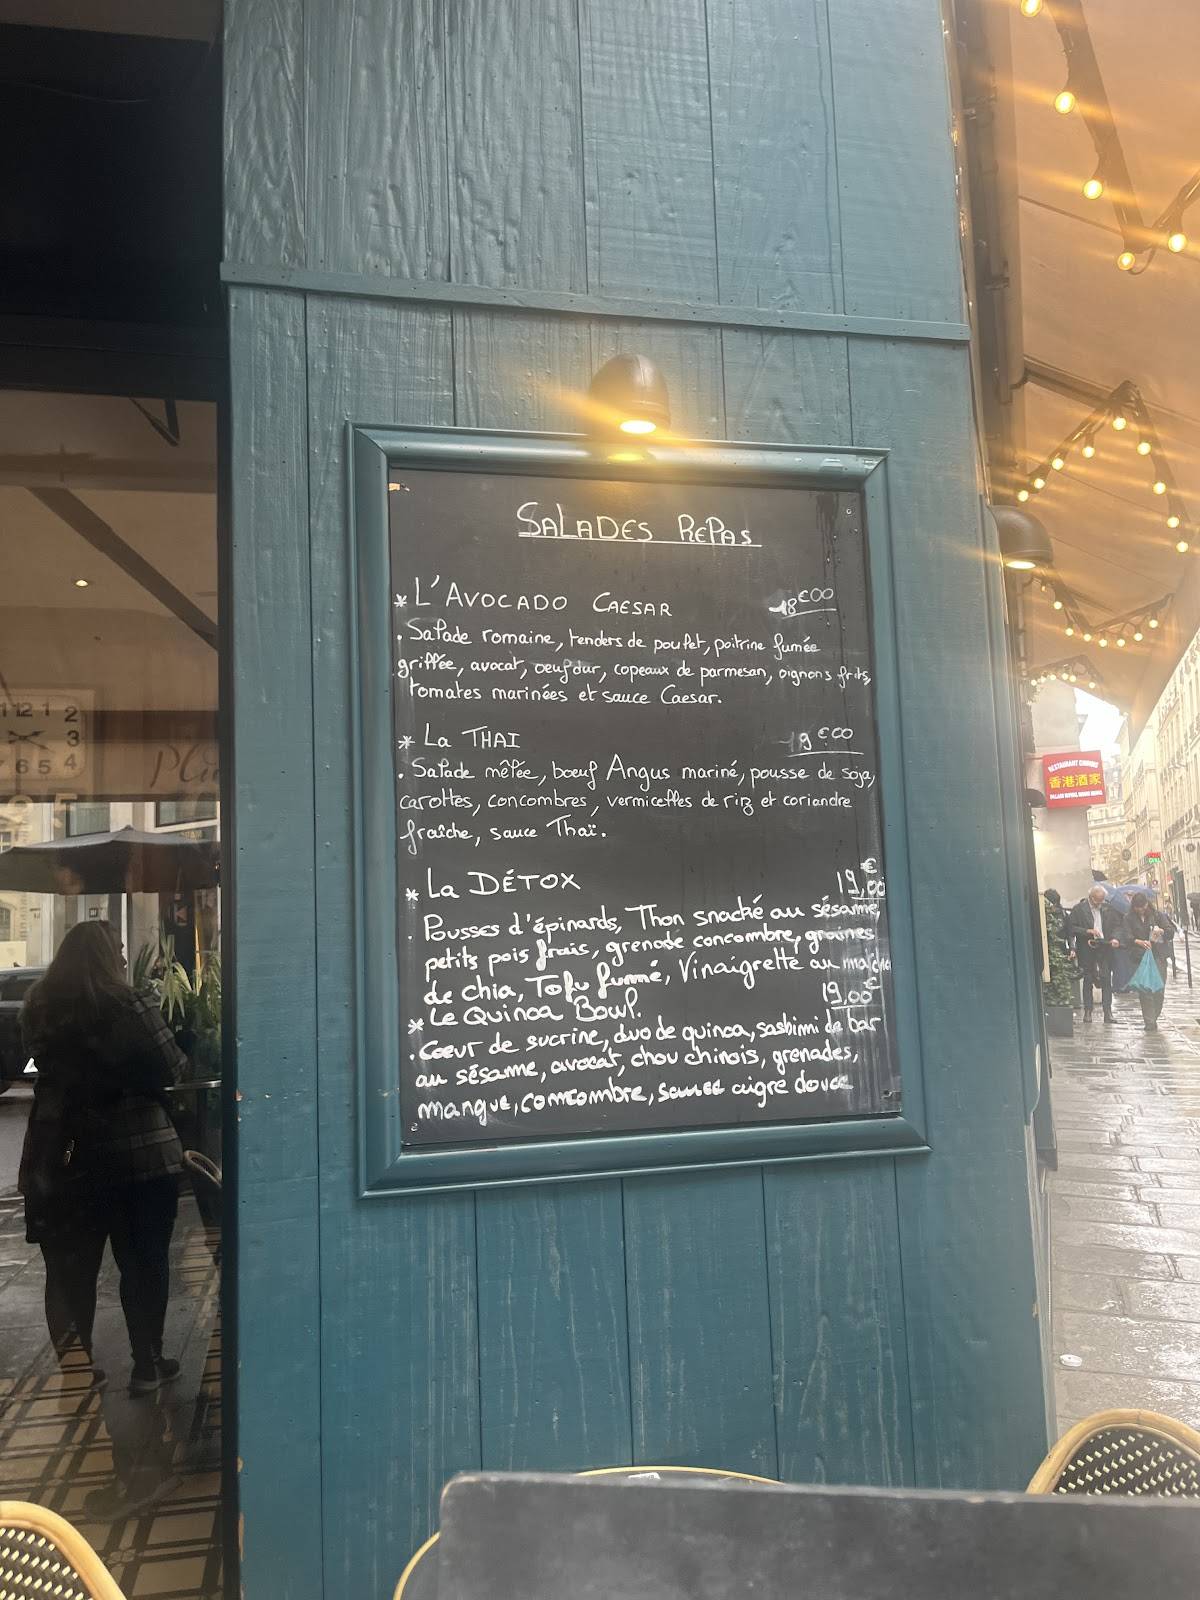 SALADES REPAS
* L'AVOCADO CAESAR 18€00
. Salade romaine, tenders de poulet, poitrine fumée
griffée, avocat, oeuf dur, copeaux de parmesan, oignons frits,
tomates marinées et sauce Caesar.
* La THAI 19€00
. Salade mêlée, boeuf Angus mariné, pousse de soja,
carottes, concombres, vermicelles de riz et coriandre
fraîche, sauce Thaï.
* La DÉTOX 19,00€
. Pousses d'épinards, Thon snacké au sésame,
petits pois frais, grenade concombre, graines
de chia, Tofu fumé, Vinaigrette au matcha
* Le Quinoa Bowl. 19,00€
. Coeur de sucrine, duo de quinoa, sashimi de bar
au sésame, avocat, chou chinois, grenades,
mangue, concombre, sauce aigre douce
RESTAURANT CHINOIS
香港酒家
12 1 2
3
7 6 5 4